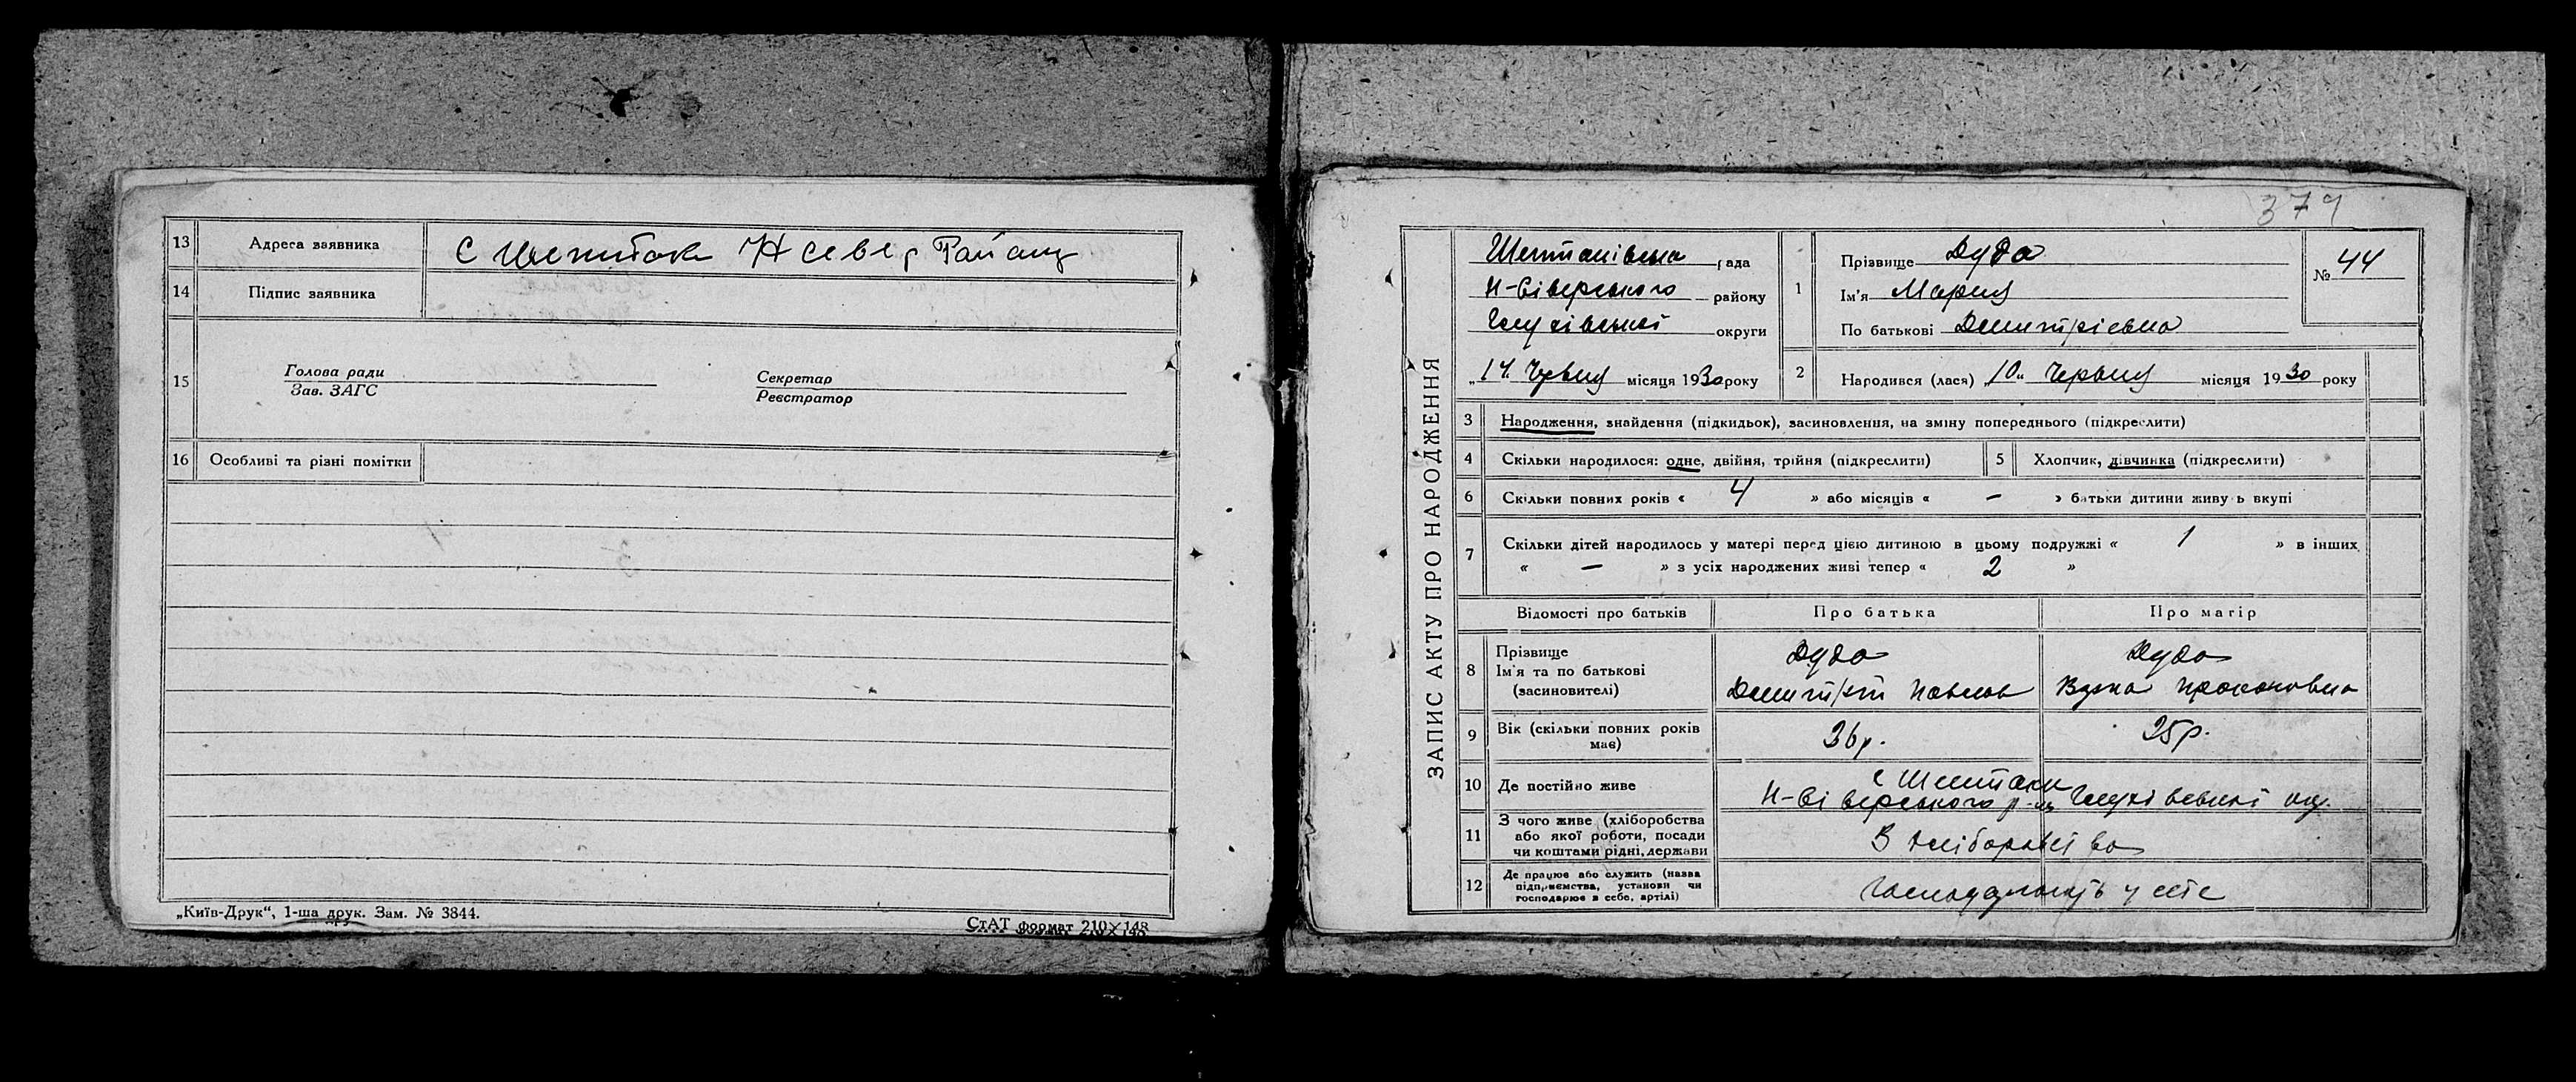 13 Адреса заявника С Шептаки Н Севе р Району
14 Підпис заявника
15 Голова ради
Зав. ЗАГС
Секретар
Реєстратор
16 Особливі та різні помітки
„Київ-Друк“, 1-ша друк. Зам. № 3844.
СтАТ формат 210×148
379
ЗАПИС АКТУ ПРО НАРОДЖЕННЯ
Шептаківська рада
Н-Сіверського району
Глухівської округи
„14 Червня місяця 1930 року
1 Прізвище Дуда
Ім'я Мария
По батькові Дмитрієвна
№ 44
2 Народився (лася) „10“ Червня місяця 1930 року
3 Народження, знайдення (підкидьок), засиновлення, на зміну попереднього (підкреслити)
4 Скільки народилося: одне, двійня, трійня (підкреслити)
5 Хлопчик, дівчинка (підкреслити)
6 Скільки повних років « 4 » або місяців « — » батьки дитини живуть вкупі
7 Скільки дітей народилось у матері перед цією дитиною в цьому подружжі « 1 » в інших
« — » з усіх народжених живі тепер « 2 »
Відомості про батьків Про батька Про матір
8 Прізвище
Ім'я та по батькові
(засиновителі)
Дуда
Павлов
Дуда
Прокоповна
9 Вік (скільки повних років
має)
36р. 25р.
10 Де постійно живе
с Шептаки
Н-Сіверського р-ну Глухівської ок.
11 З чого живе (хліборобства
або якої роботи, посади
чи коштами рідні, держави
З хліборобства
12 Де працює або служить (назва
підприємства, установи чи
господарює в себе, артілі)
у себе